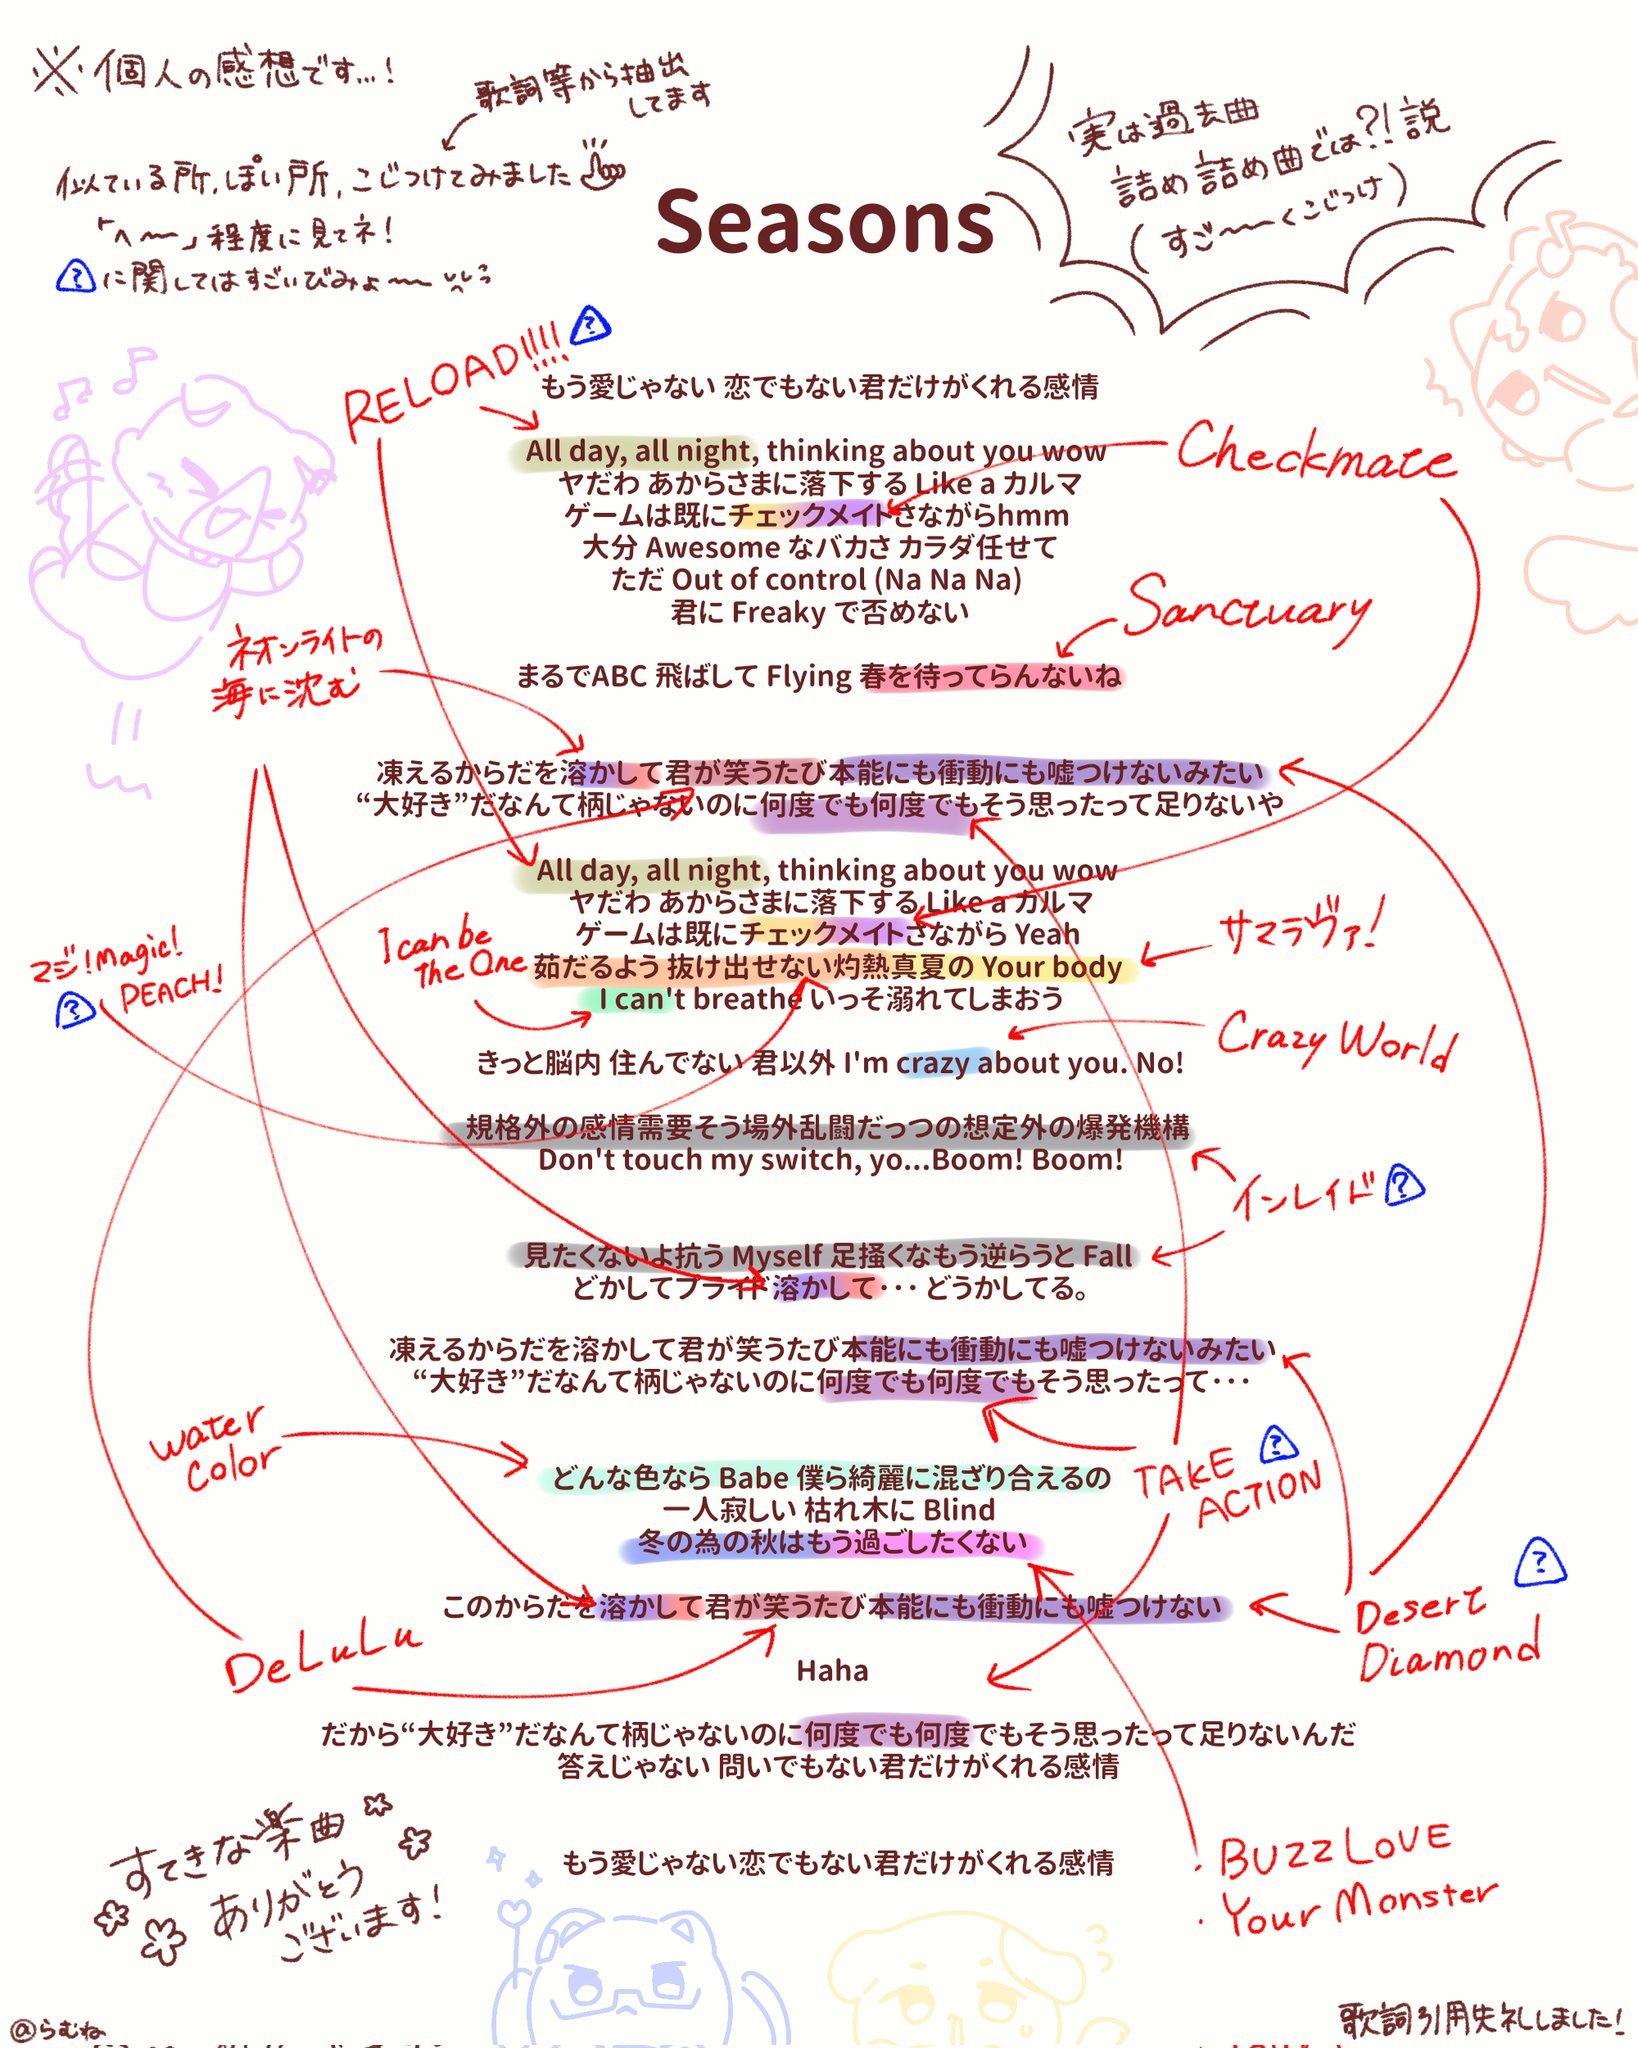 ※個人の感想です…!
歌詞等から抽出
してます
似ている所、ぽい所、こじつけてみました
「へ〜〜」程度に見てネ!
?に関してはすごいびみょ〜〜
Seasons
実は過去曲
詰め詰め曲では?!説
(すご〜〜くこじつけ)
RELOAD!!!!
?
もう愛じゃない 恋でもない君だけがくれる感情
All day, all night, thinking about you wow
ヤだわ あからさまに落下する Like a カルマ
ゲームは既にチェックメイトさながらhmm
大分 Awesome なバカさ カラダ任せて
ただ Out of control (Na Na Na)
君に Freaky で否めない
Checkmate
Sanctuary
まるでABC 飛ばして Flying 春を待ってらんないね
ネオンライトの
海に沈む
凍えるからだを溶かして君が笑うたび本能にも衝動にも嘘つけないみたい
“大好き”だなんて柄じゃないのに何度でも何度でもそう思ったって足りないや
All day, all night, thinking about you wow
ヤだわ あからさまに落下する Like a カルマ
ゲームは既にチェックメイトさながら Yeah
茹だるよう 抜け出せない灼熱真夏の Your body
I can't breathe いっそ溺れてしまおう
サマラヴァ!
I can be
the One
マジ!magic!
PEACH!
?
きっと脳内 住んでない 君以外 I'm crazy about you. No!
Crazy World
規格外の感情需要そう場外乱闘だっつの想定外の爆発機構
Don't touch my switch, yo...Boom! Boom!
インレイド
?
見たくないよ抗う Myself 足掻くなもう逆らうと Fall
どかしてプライド 溶かして・・・ どうかしてる。
凍えるからだを溶かして君が笑うたび本能にも衝動にも嘘つけないみたい
“大好き”だなんて柄じゃないのに何度でも何度でもそう思ったって・・・
water
color
どんな色なら Babe 僕ら綺麗に混ざり合えるの
一人寂しい 枯れ木に Blind
冬の為の秋はもう過ごしたくない
TAKE
ACTION
?
このからだを溶かして君が笑うたび本能にも衝動にも嘘つけない
DeLuLu
Desert
Diamond
?
Haha
だから“大好き”だなんて柄じゃないのに何度でも何度でもそう思ったって足りないんだ
答えじゃない 問いでもない君だけがくれる感情
もう愛じゃない恋でもない君だけがくれる感情
・BUZZ LOVE
・Your Monster
すてきな楽曲
ありがとう
ございます!
@らむね
歌詞引用失礼しました!